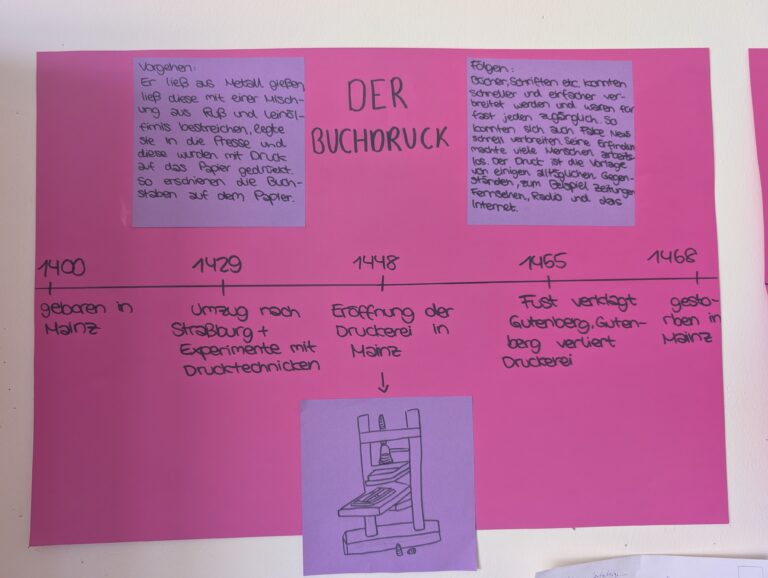 Vorgehen:
Er ließ aus Metall gießen,
ließ diese mit einer Misch-
ung aus Ruß und Leinöl-
firnis bestreichen, legte
sie in die Presse und
diese wurden mit Druck
auf das Papier gedrückt.
So erschienen die Buch-
staben auf dem Papier.
DER
BUCHDRUCK
Folgen:
Bücher, Schriften etc. konnten
schneller und einfacher ver-
breitet werden und waren für
fast jeden zugänglich. So
konnten sich auch Fake News
schnell verbreiten. Seine Erfindung
machte viele Menschen arbeits-
los. Der Druck ist die Vorlage
von einigen alltäglichen Gegen-
ständen, zum Beispiel Zeitungen
Fernsehen, Radio und das
Internet.
1400
geboren in
Mainz
1429
Umzug nach
Straßburg +
Experimente mit
Drucktechnicken
1448
Eröffnung der
Druckerei in
Mainz
1455
Fust verklagt
Gutenberg, Guten-
berg verliert
Druckerei
1468
gesto-
rben in
Mainz